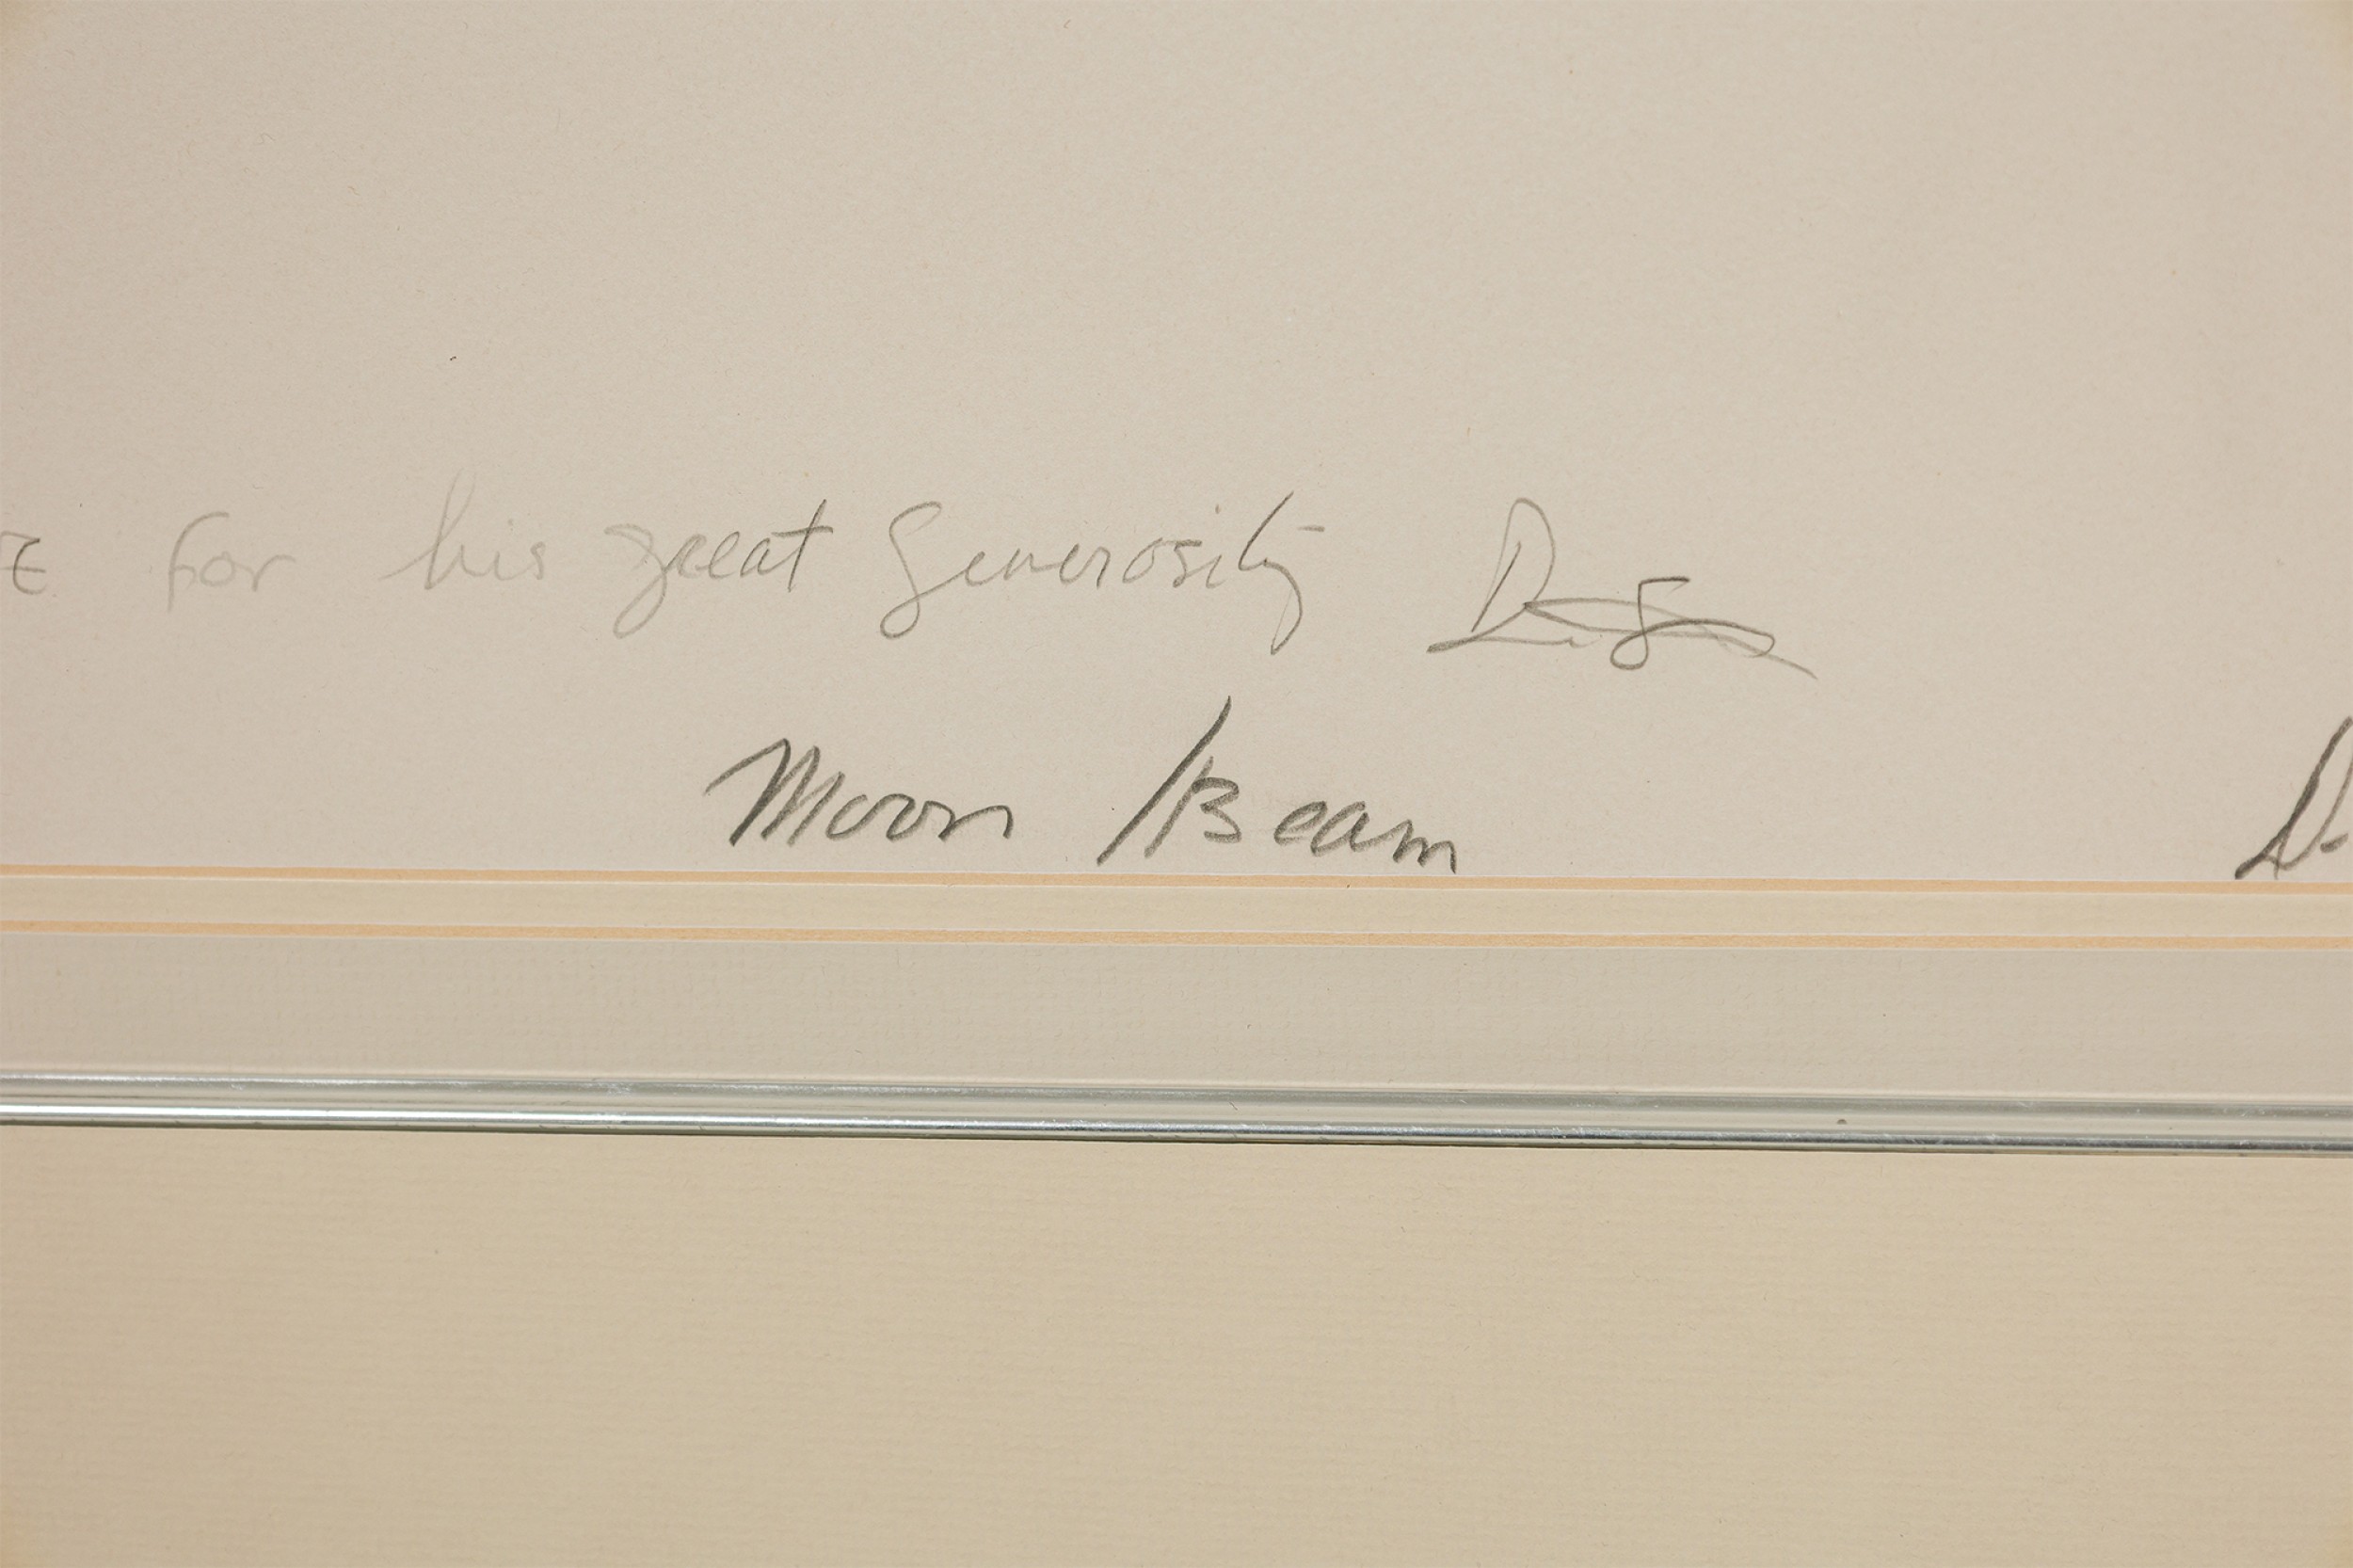 for his great generosity
Moon Beam